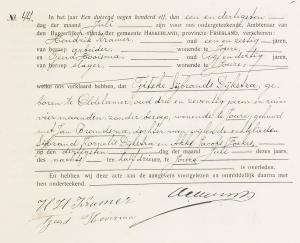 No. 44
In het jaar Een duizend negen honderd elf, den een en dertigsten
dag der maand Juli is voor ons ondergeteekende, Ambtenaar van
den Burgerlijken stand der gemeente HASKERLAND, provincie FRIESLAND, verschenen:
Hendrik Kramer oud een en zestig jaren,
van beroep arbeider wonende te Joure
en Tjeerd Hoorsma oud jaren,
van beroep slager wonende te Joure
welke ons verklaard hebben, dat Tjitske Sijbrands Dijkstra, ge-
boren te Oldelamer oud drie en zeventig jaren en ruim
vier maanden zonder beroep, wonende te Joure, gehuwd
met Jan dochter van wijlen de echtelieden
Sijbrand Kornelis Dijkstra en Jacobs
op den dertigsten dag der maand Juli dezes jaars,
des nachts ten half drie ure, te Joure
is overleden.
En hebben wij deze acte aan de aangevers voorgelezen en onmiddellijk daarna met
hen onderteekend.
H H Kramer
Tjeerd Hoorsma